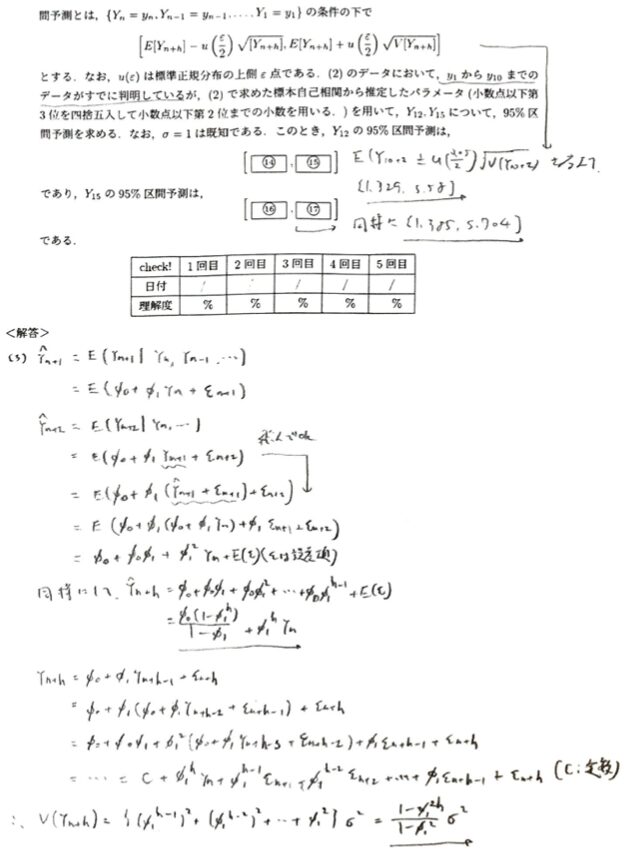 間予測とは, {Y_n = y_n, Y_{n-1} = y_{n-1}, ..., Y_1 = y_1} の条件の下で
[E[Y_{n+h}] − u(ε/2) √[Y_{n+h}], E[Y_{n+h}] + u(ε/2) √V[Y_{n+h}]]
とする. なお, u(ε) は標準正規分布の上側 ε 点である. (2) のデータにおいて, y_1 から y_10 までの
データがすでに判明しているが, (2) で求めた標本自己相関から推定したパラメータ (小数点以下第
3 位を四捨五入して小数点以下第 2 位までの小数を用いる. ) を用いて, Y_12, Y_15 について, 95% 区
間予測を求める. なお, σ = 1 は既知である. このとき, Y_12 の 95% 区間予測は,
[ ⑭ , ⑮ ] E(Y_{10+2} ± u(0.05/2) √V(Y_{10+2})
であり, Y_15 の 95% 区間予測は,
[ ⑯ , ⑰ ] 同様に [1.385, 5.704]
である.
check! 1 回目 2 回目 3 回目 4 回目 5 回目
日付 / / / / /
理解度 % % % % %
<解答>
Ŷ_{n+1} = E(Y_{n+1} | Y_n, Y_{n-1}, ...)
= E(φ_0 + φ_1 Y_n + ε_{n+1})
Ŷ_{n+2} = E(Y_{n+2} | Y_n, ...)
= E(φ_0 + φ_1 Y_{n+1} + ε_{n+2})
= E(φ_0 + φ_1 (Ŷ_{n+1} + ε_{n+1}) + ε_{n+2})
= E(φ_0 + φ_1(φ_0 + φ_1 Y_n) + φ_1 ε_{n+1} + ε_{n+2})
= φ_0 + φ_0 φ_1 + φ_1^2 Y_n + E(ε)
同様にして, Ŷ_{n+h} = φ_0 + φ_0 φ_1 + φ_0 φ_1^2 + ... + φ_0 φ_1^{h-1} + E(ε)
= φ_0(1−φ_1^h)/(1−φ_1) + φ_1^h Y_n
Y_{n+h} = φ_0 + φ_1 Y_{n+h-1} + ε_{n+h}
= φ_0 + φ_1(φ_0 + φ_1 Y_{n+h-2} + ε_{n+h-1}) + ε_{n+h}
= φ_0 + φ_0 φ_1 + φ_1^2(φ_0 + φ_1 Y_{n+h-3} + ε_{n+h-2}) + φ_1 ε_{n+h-1} + ε_{n+h}
= ... = C + φ_1^h Y_n + φ_1^{h-1} ε_{n+1} + φ_1^{h-2} ε_{n+2} + ... + φ_1 ε_{n+h-1} + ε_{n+h} (C: 定数)
∴ V(Y_{n+h}) = {(φ_1^{h-1})^2 + (φ_1^{h-2})^2 + ... + φ_1^2} σ^2 = (1−φ_1^{2h})/(1−φ_1^2) σ^2